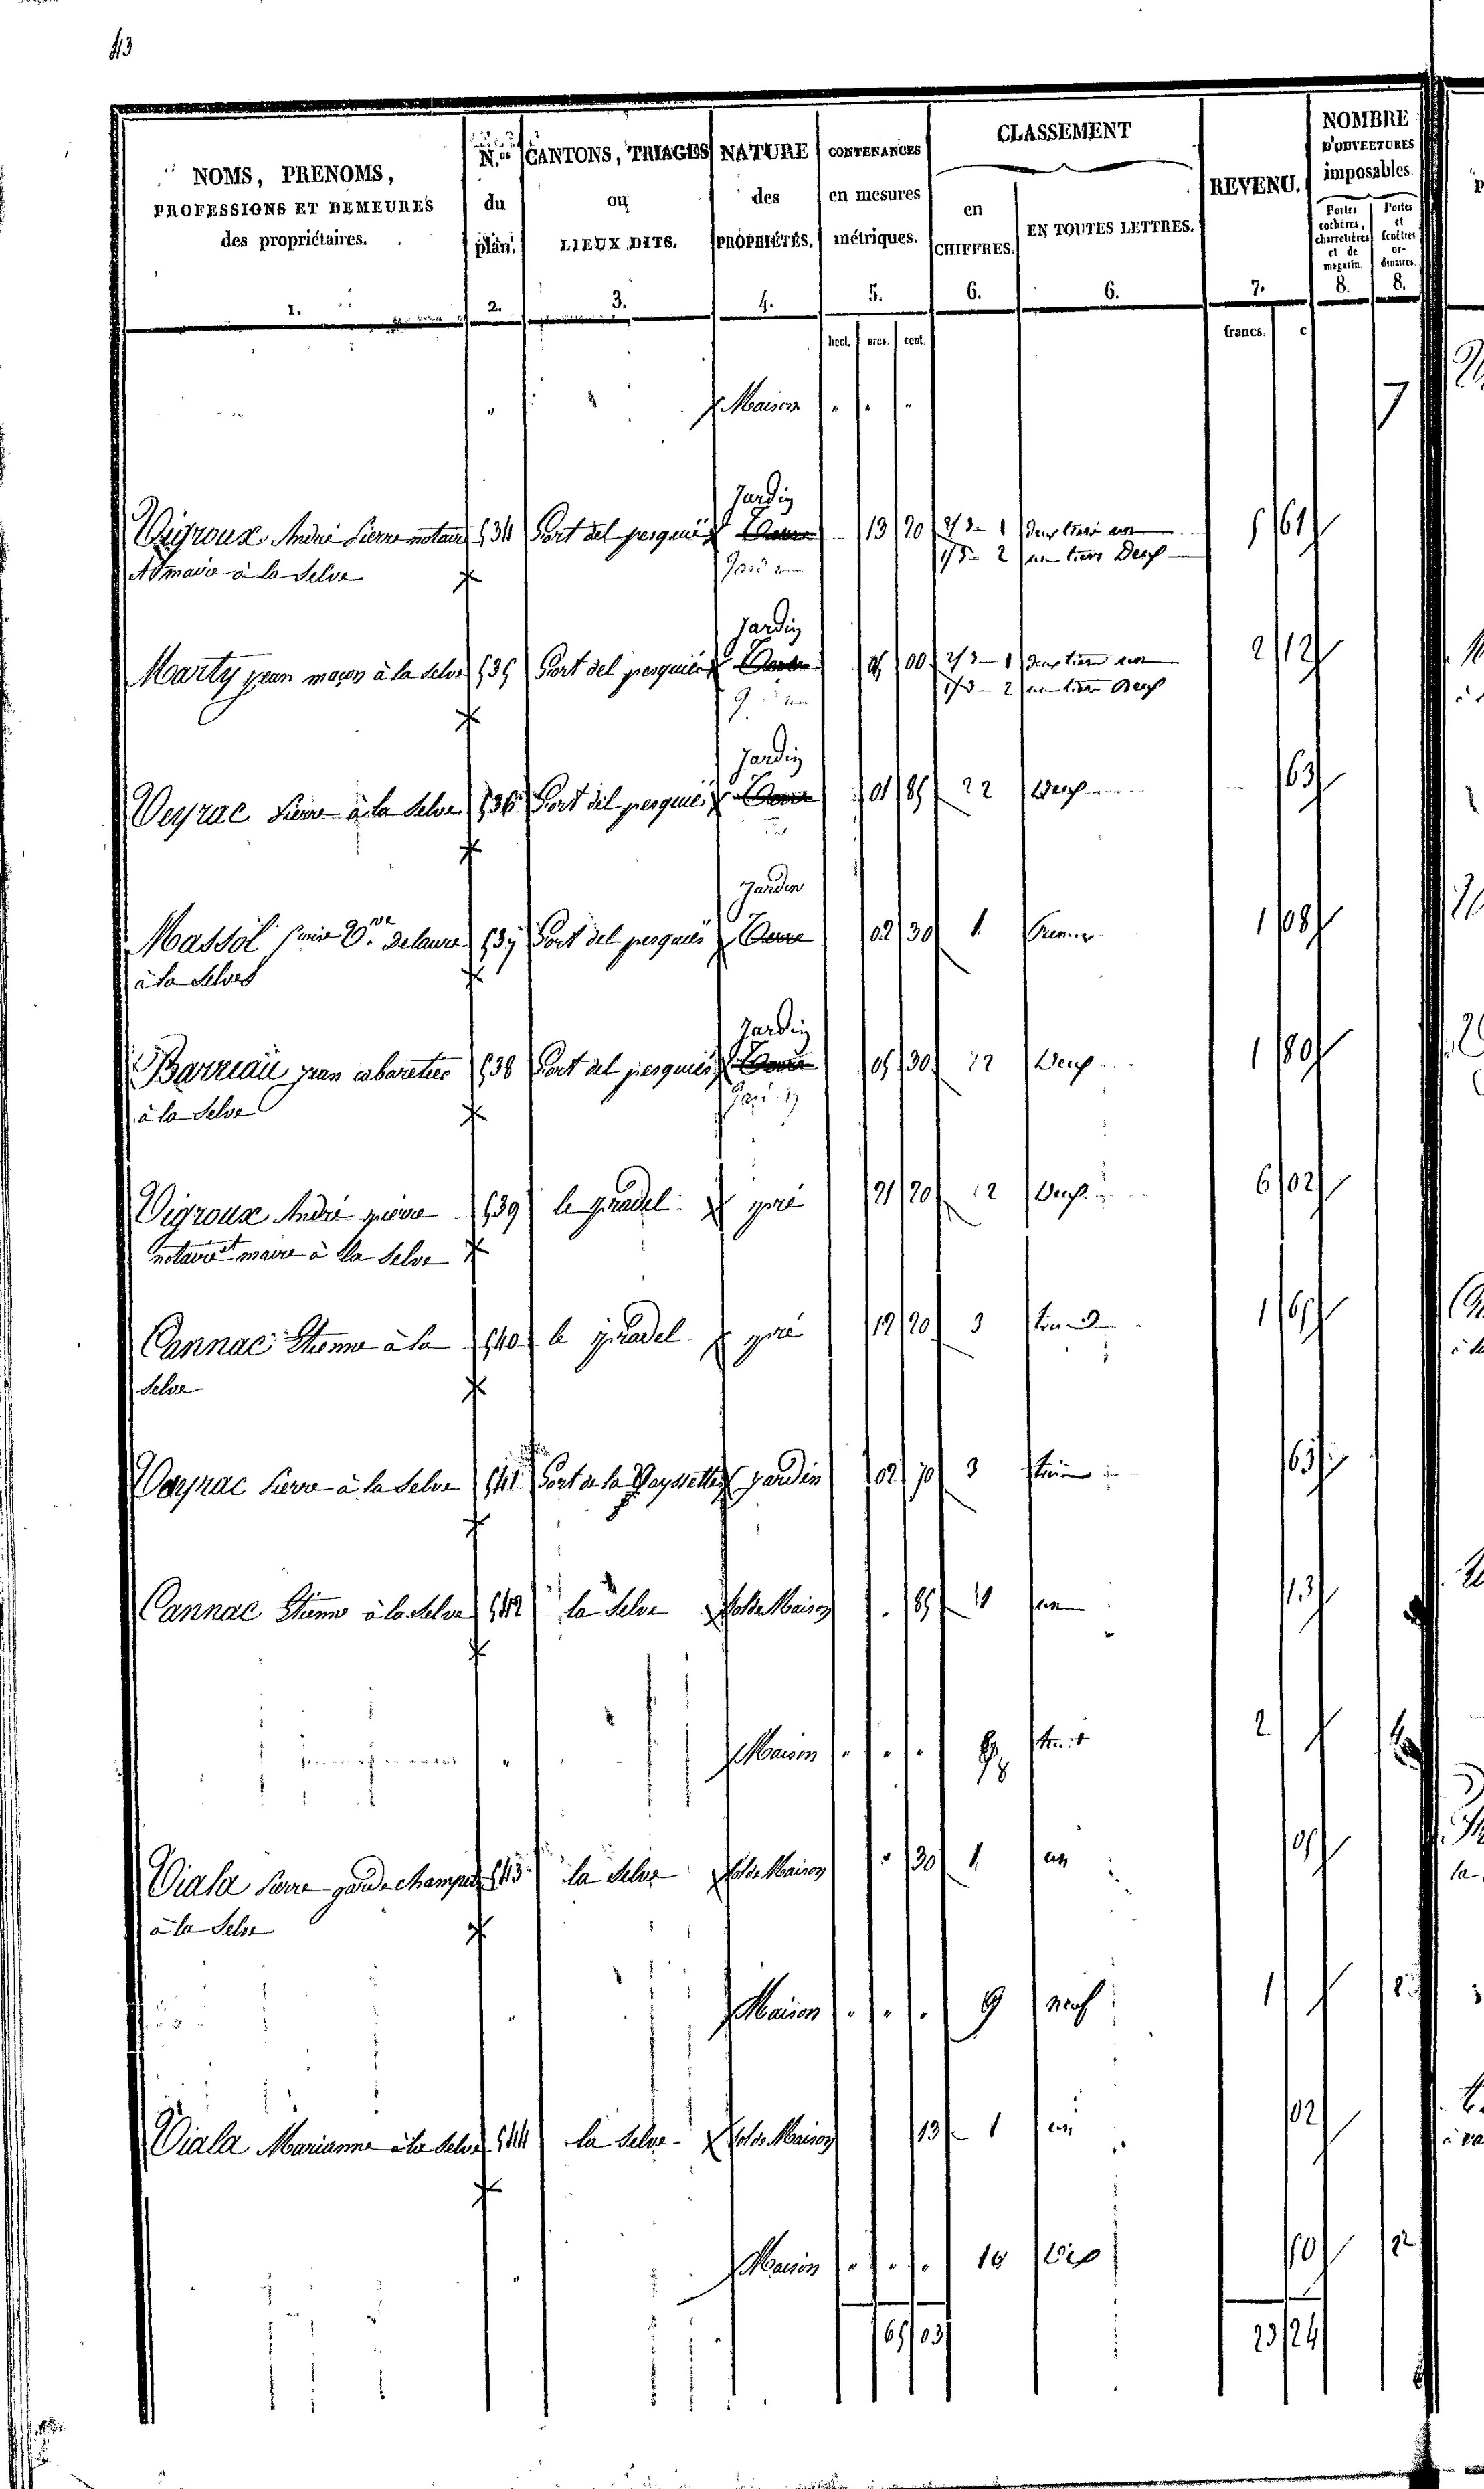 43
NOMS, PRENOMS,
PROFESSIONS ET DEMEURES
des propriétaires.
1.
N.os
du
plan.
2.
CANTONS, TRIAGES
ou
LIEUX DITS.
3.
NATURE
des
PROPRIÉTÉS.
4.
CONTENANCES
en mesures
métriques.
5.
CLASSEMENT
en
CHIFFRES.
6.
EN TOUTES LETTRES.
6.
REVENU.
7.
NOMBRE
D'OUVERTURES
imposables.
Portes
cochères,
charretières
et de
magasin.
8.
Portes
et
fenêtres
or-
dinaires.
8.
hect. ares. cent. francs. c
" Maison " " " 7
Jardin
Vigroux André Pierre notaire 534 Port del pesquié 13 20 2/3 - 1 deux tiers un 5 61
et maire à la Selve 1/3 - 2 un tiers Deux
Jardin
Marty jean maçon à la selve 535 Port del pesquié 05 00 2/3 - 1 deux tiers un 2 12
1/3 - 2 un tiers Deux
Jardin
Veyrac Pierre à la Selve 536 Port del pesquié 01 85 2 Deux 63
Jardin
Massol 537 Port del pesquié Terre 02 30 1 Premier 1 08
à la Selve
Jardin
Barreau jean cabaretier 538 Port del pesquié 05 30 2 Deux 1 80
à la Selve
Vigroux André pierre 539 le pradel pré 21 20 2 Deux 6 02
notaire et maire à la Selve
Cannac Etienne à la 540 le pradel pré 12 20 3 1 65
Selve
Veyrac Pierre à la Selve 541 Port de la Vayssette jardin 02 70 3 trois 65
Cannac Etienne à la Selve 542 la Selve Sol de Maison 85 1 un 13
" Maison " " " 8 huit 2
Viala Pierre garde champetre 543 la Selve Sol de Maison " 30 1 un 05
à la Selve
" Maison " " " 9 neuf 1 2
Viala Marianne à la Selve 544 la Selve Sol de Maison 13 1 un 02
" Maison " " " 10 Dix 50 2
65 03 23 24